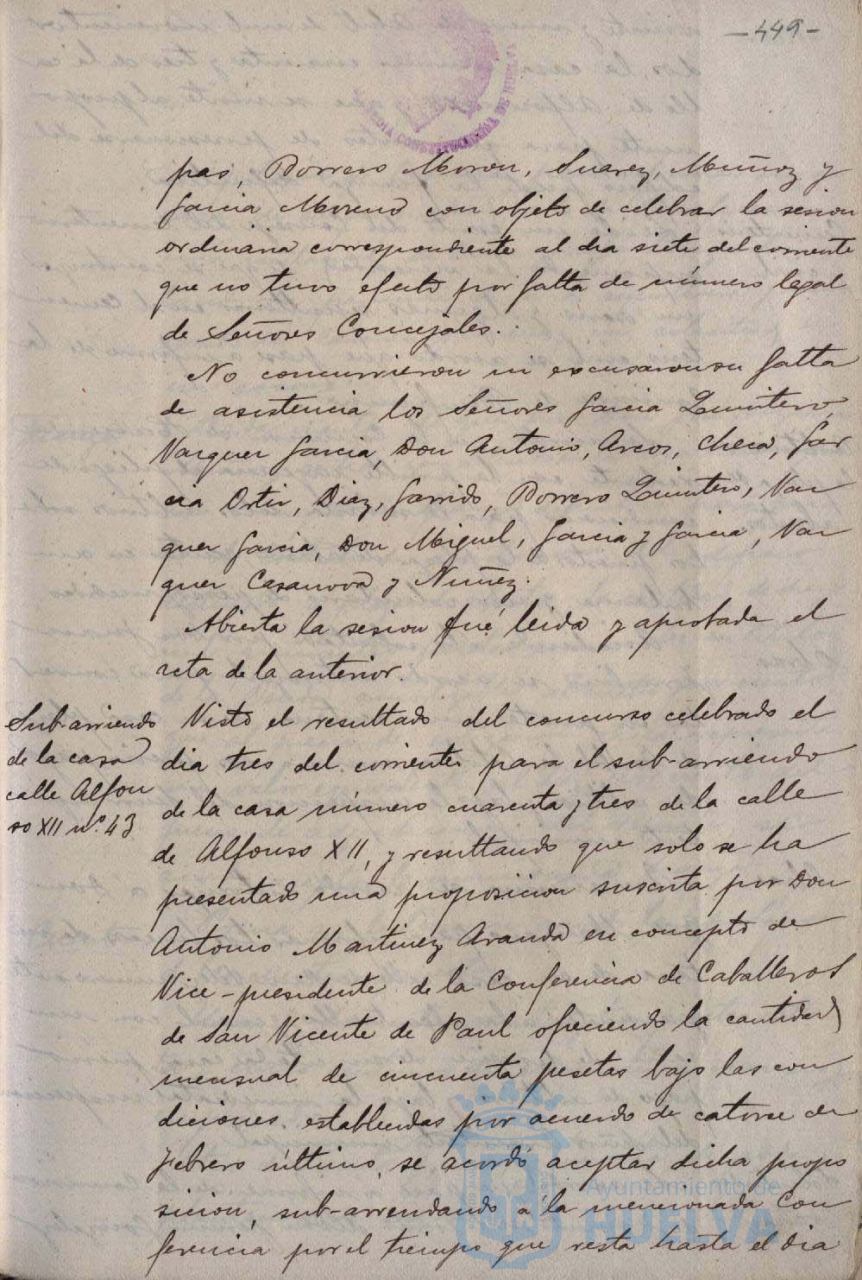 - 449 -
pas, Borrero Moron, Suarez, Muñoz y
Garcia Moreno con objeto de celebrar la sesion
ordinaria correspondiente al dia siete del corriente
que no tuvo efecto por falta de número legal
de Señores Concejales.
No concurrieron ni excusaron su falta
de asistencia los Señores Garcia Quintero,
Vazquez Garcia, Don Antonio, Arcos, Checa, Gar
cia Ortiz, Diaz, Garrido, Borrero Quintero, Vaz
quez Garcia, Don Miguel, Garcia y Garcia, Vaz
quez Casanova y Nuñez.
Abierta la sesion fué leida y aprobada el
acta de la anterior.
Sub-arriendo
de la casa
calle Alfon
so XII nº. 43
Visto el resultado del concurso celebrado el
dia tres del corriente para el sub-arriendo
de la casa número cuarenta y tres de la calle
de Alfonso XII, y resultando que solo se ha
presentado una proposicion suscrita por Don
Antonio Martinez Aranda en concepto de
Vice-presidente de la Conferencia de Caballeros
de San Vicente de Paul ofreciendo la cantidad
mensual de cincuenta pesetas bajo las con
diciones establecidas por acuerdo de catorce de
Febrero último, se acordó aceptar dicha propo
sicion, sub-arrendando á la mencionada Con
ferencia por el tiempo que resta hasta el dia
Ayuntamiento de
HUELVA